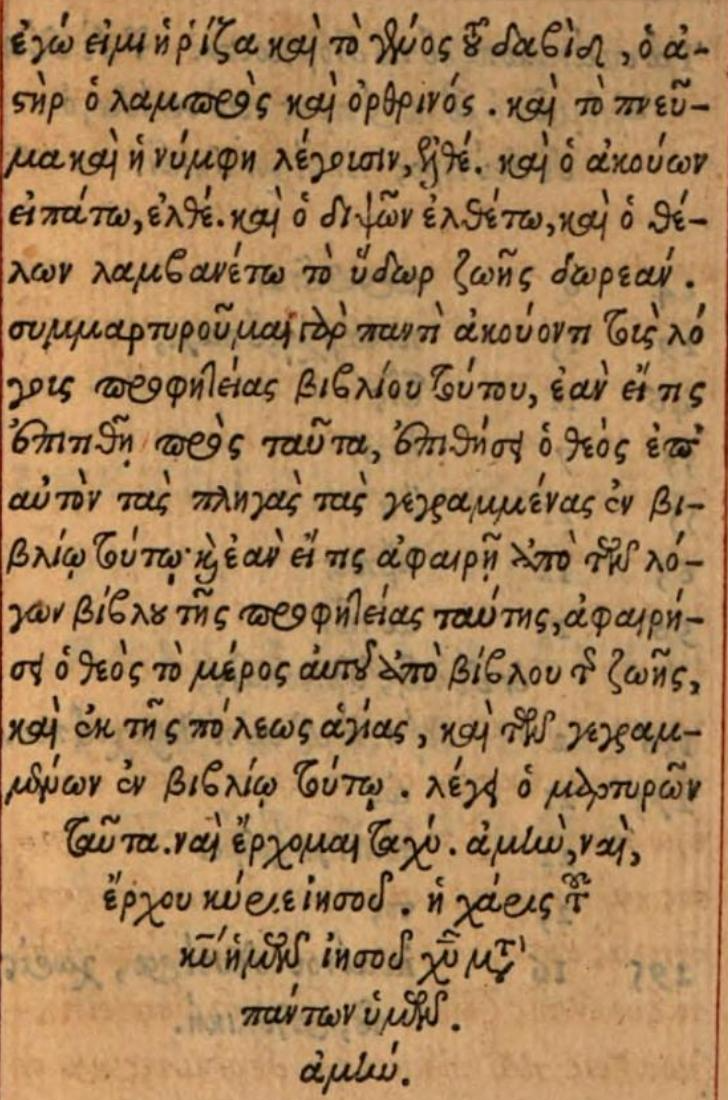 ἐγώ εἰμι ἡ ῥίζα καὶ τὸ γένος τοῦ δαβὶδ, ὁ ἀ-
στὴρ ὁ λαμπρὸς καὶ ὀρθρινός. καὶ τὸ πνεῦ-
μα καὶ ἡ νύμφη λέγουσιν, ἐλθέ. καὶ ὁ ἀκούων
εἰπάτω, ἐλθέ. καὶ ὁ διψῶν ἐλθέτω, καὶ ὁ θέ-
λων λαμβανέτω τὸ ὕδωρ ζωῆς δωρεάν.
συμμαρτυροῦμαι γὰρ παντὶ ἀκούοντι τοὺς λό
γους προφητείας βιβλίου τούτου, ἐὰν εἴ τις
ἐπιτιθῇ πρὸς ταῦτα, ἐπιθήσει ὁ θεὸς ἐπ'
αὐτὸν τὰς πληγὰς τὰς γεγραμμένας ἐν βι-
βλίῳ τούτῳ· καὶ ἐὰν εἴ τις ἀφαιρῇ ἀπὸ τῶν λό-
γων βίβλου τῆς προφητείας ταύτης, ἀφαιρή-
σει ὁ θεὸς τὸ μέρος αὐτοῦ ἀπὸ βίβλου τῆς ζωῆς,
καὶ ἐκ τῆς πόλεως ἁγίας, καὶ τῶν γεγραμ-
μένων ἐν βιβλίῳ τούτῳ. λέγει ὁ μαρτυρῶν
ταῦτα. ναὶ ἔρχομαι ταχύ. ἀμὴν, ναὶ,
ἔρχου κύριε ἰησοῦ. ἡ χάρις τοῦ
κυ ἡμῶν ἰησοῦ χυ μετὰ
πάντων ὑμῶν.
ἀμήν.